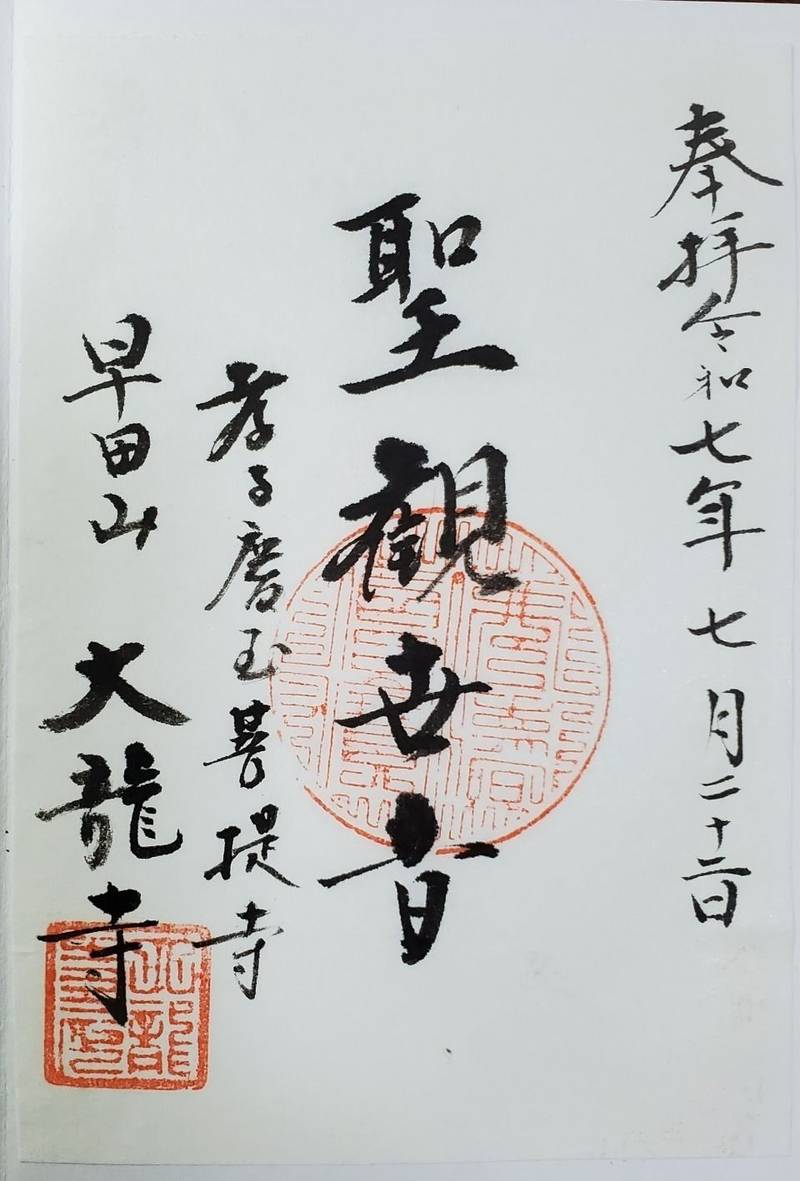 奉拝令和七年七月二十二日
聖観世音
孝子磨玉菩提寺
早田山 大龍寺